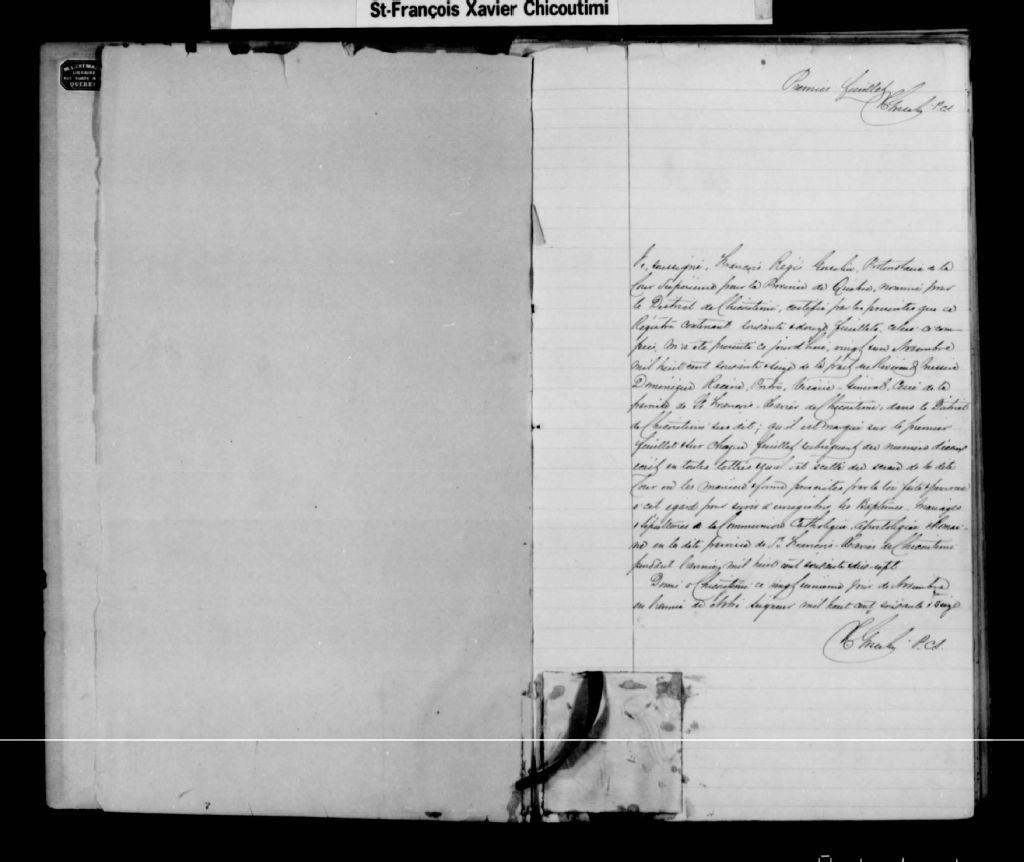 St-François Xavier Chicoutimi
QUEBEC
Premier feuillet
P.C.S.
Je, soussigné, François Régis Gosselin, Protonotaire de la
Cour Supérieure pour la Province de Québec, nommé pour
le District de Chicoutimi, certifie par les présentes que ce
Régistre contenant soixante & douze feuillets, celui-ci com-
pris, m'a été présenté ce jourd'hui, vingt un Novembre
mil huit cent soixante & seize de la part du Révérend Messire
Dominique Racine, Prêtre, Vicaire-Général, Curé de la
paroisse de St François-Xavier de Chicoutimi, dans le District
de Chicoutimi sus dit; qu'il est marqué sur le premier
feuillet & sur chaque feuillet subséquent du numéro d'icelui
écrit en toutes lettres & qu'il est scellé du sceau de la dite
Cour en la manière & forme prescrites par la loi faite & pourvue
à cet égard pour servir à enregistrer les Baptêmes, Mariages
& Sépultures de la Communion Catholique, Apostolique & Romai-
ne en la dite paroisse de St François-Xavier de Chicoutimi
pendant l'année mil huit cent soixante & dix-sept.
Donné à Chicoutimi ce vingt unième jour de Novembre
en l'année de Notre Seigneur mil huit cent soixante & seize
P.C.S.